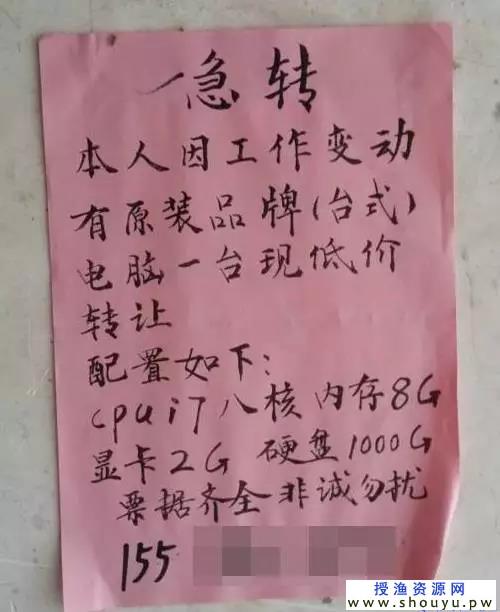 急转
本人因工作变动
有原装品牌(台式)
电脑一台现低价
转让
配置如下:
cpu i7 八核 内存8G
显卡2G 硬盘1000G
票据齐全 非诚勿扰
155
授渔资源网
www.shouyu.pw